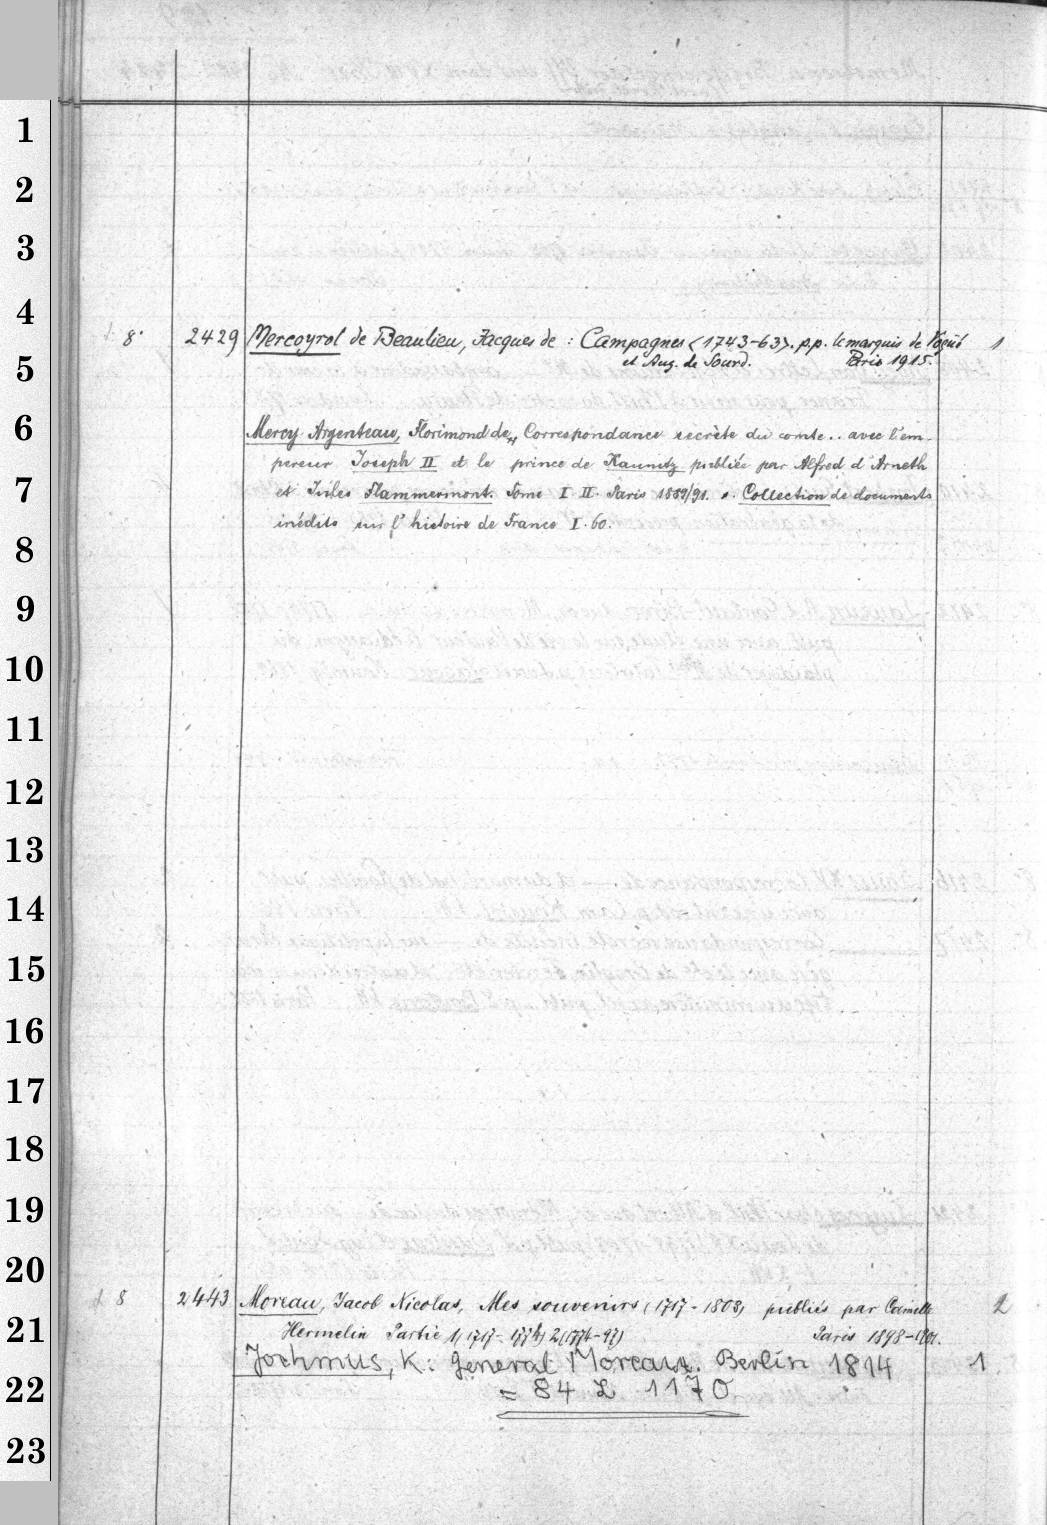 1
2
3
4
8° 2429 Mercoyrol de Beaulieu, Jacques de : Campagnes <1743-63>. p.p. le marquis de Vogüé 1
et Aug. de Sourd. Paris 1915.
5
6
Mercy Argenteau, Florimond de, Correspondance secrète du comte .. avec l'em-
pereur Joseph II et le prince de Kaunitz publiée par Alfred d'Arneth
7
et Jules Flammermont. Tome I II. Paris 1889/91. Collection de documents
inédits sur l'histoire de France I. 60.
8
9
10
11
12
13
14
15
16
17
18
19
20
8 2443 Moreau, Jacob Nicolas, Mes souvenirs (1717-1803) publiés par Camille 2
21
Hermelin Partie 1(1717-1774) 2(1774-97) Paris 1898-1901.
Jochmus, K: General Moreau. Berlin 1814 1
22
= 84 L 1170
23